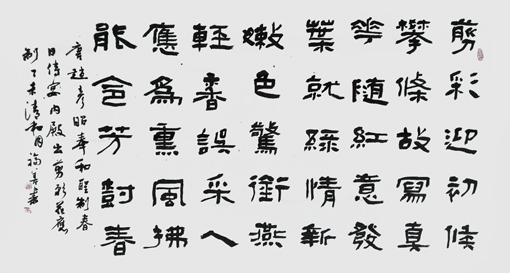 剪彩迎初候
攀條故寫真
花隨紅意發
葉就綠情新
嫩色驚銜燕
輕香誤采人
應為熏風拂
能令芳樹春
唐趙彥昭奉和聖制春
日侍宴內殿出剪彩花應
制丁未清和月福善書